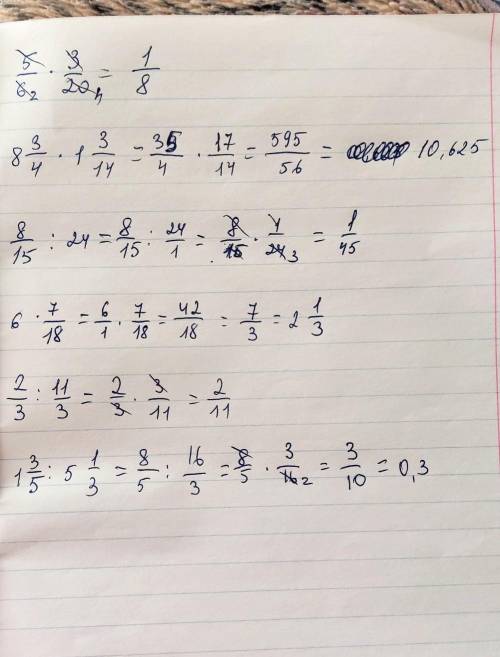 5/6 2 · 3/20 4 = 1/8
8 3/4 · 1 3/14 = 35/4 · 17/14 = 595/56 = 10,625
8/15 : 24 = 8/15 : 24/1 = 8/15 · 1/24 3 = 1/45
6 · 7/18 = 6/1 · 7/18 = 42/18 = 7/3 = 2 1/3
2/3 : 11/3 = 2/3 · 3/11 = 2/11
1 3/5 : 5 1/3 = 8/5 : 16/3 = 8/5 · 3/16 2 = 3/10 = 0,3